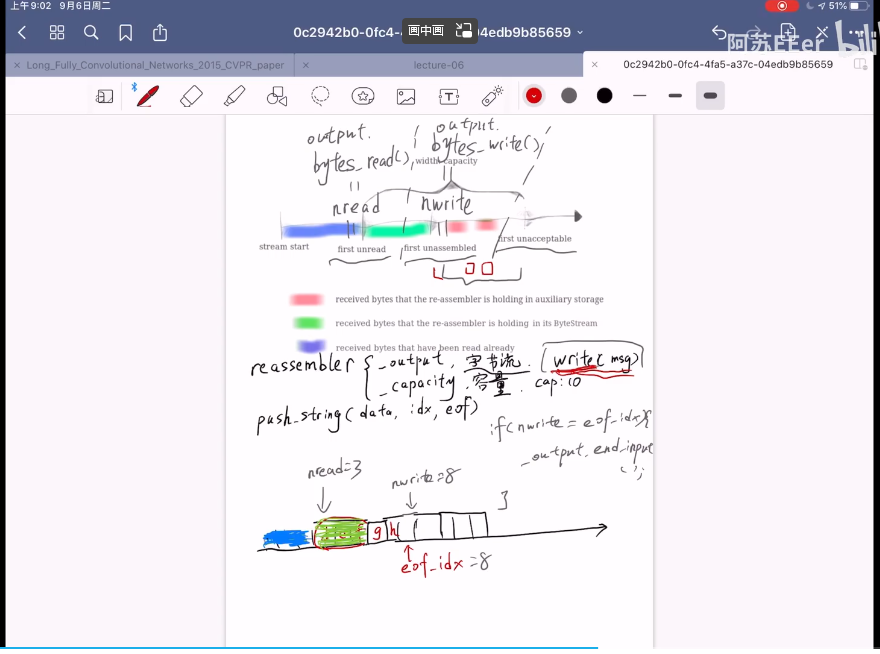 上午9:02 9月6日周二
51%
0c2942b0-0fc4-
画中画
4edb9b85659
阿苏EEer
bili
Long_Fully_Convolutional_Networks_2015_CVPR_paper
lecture-06
0c2942b0-0fc4-4fa5-a37c-04edb9b85659
output.
output.
bytes_read(),
bytes_write()
width capacity
nread
nwrite
stream start
first unread
first unassembled
first unacceptable
received bytes that the re-assembler is holding in auxiliary storage
received bytes that the re-assembler is holding in its ByteStream
received bytes that have been read already
reassembler { _output, 字节流. (write(msg))
_capacity, 容量. cap:10
push_string(data, idx, eof)
if(nwrite = eof_idx){
_output.end_input
();
}
nread=3
nwrite=8
g h
eof_idx=8